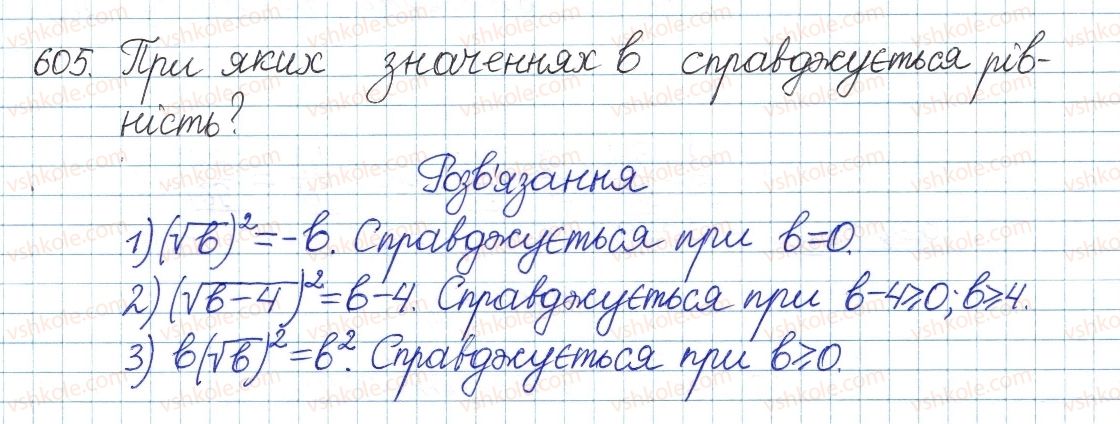 605. При яких значеннях в справджується рів-
ність?
Розв'язання
1) (√в)² = -в. Справджується при в=0.
2) (√в-4)² = в-4. Справджується при в-4⩾0; в⩾4.
3) в(√в)² = в². Справджується при в⩾0.